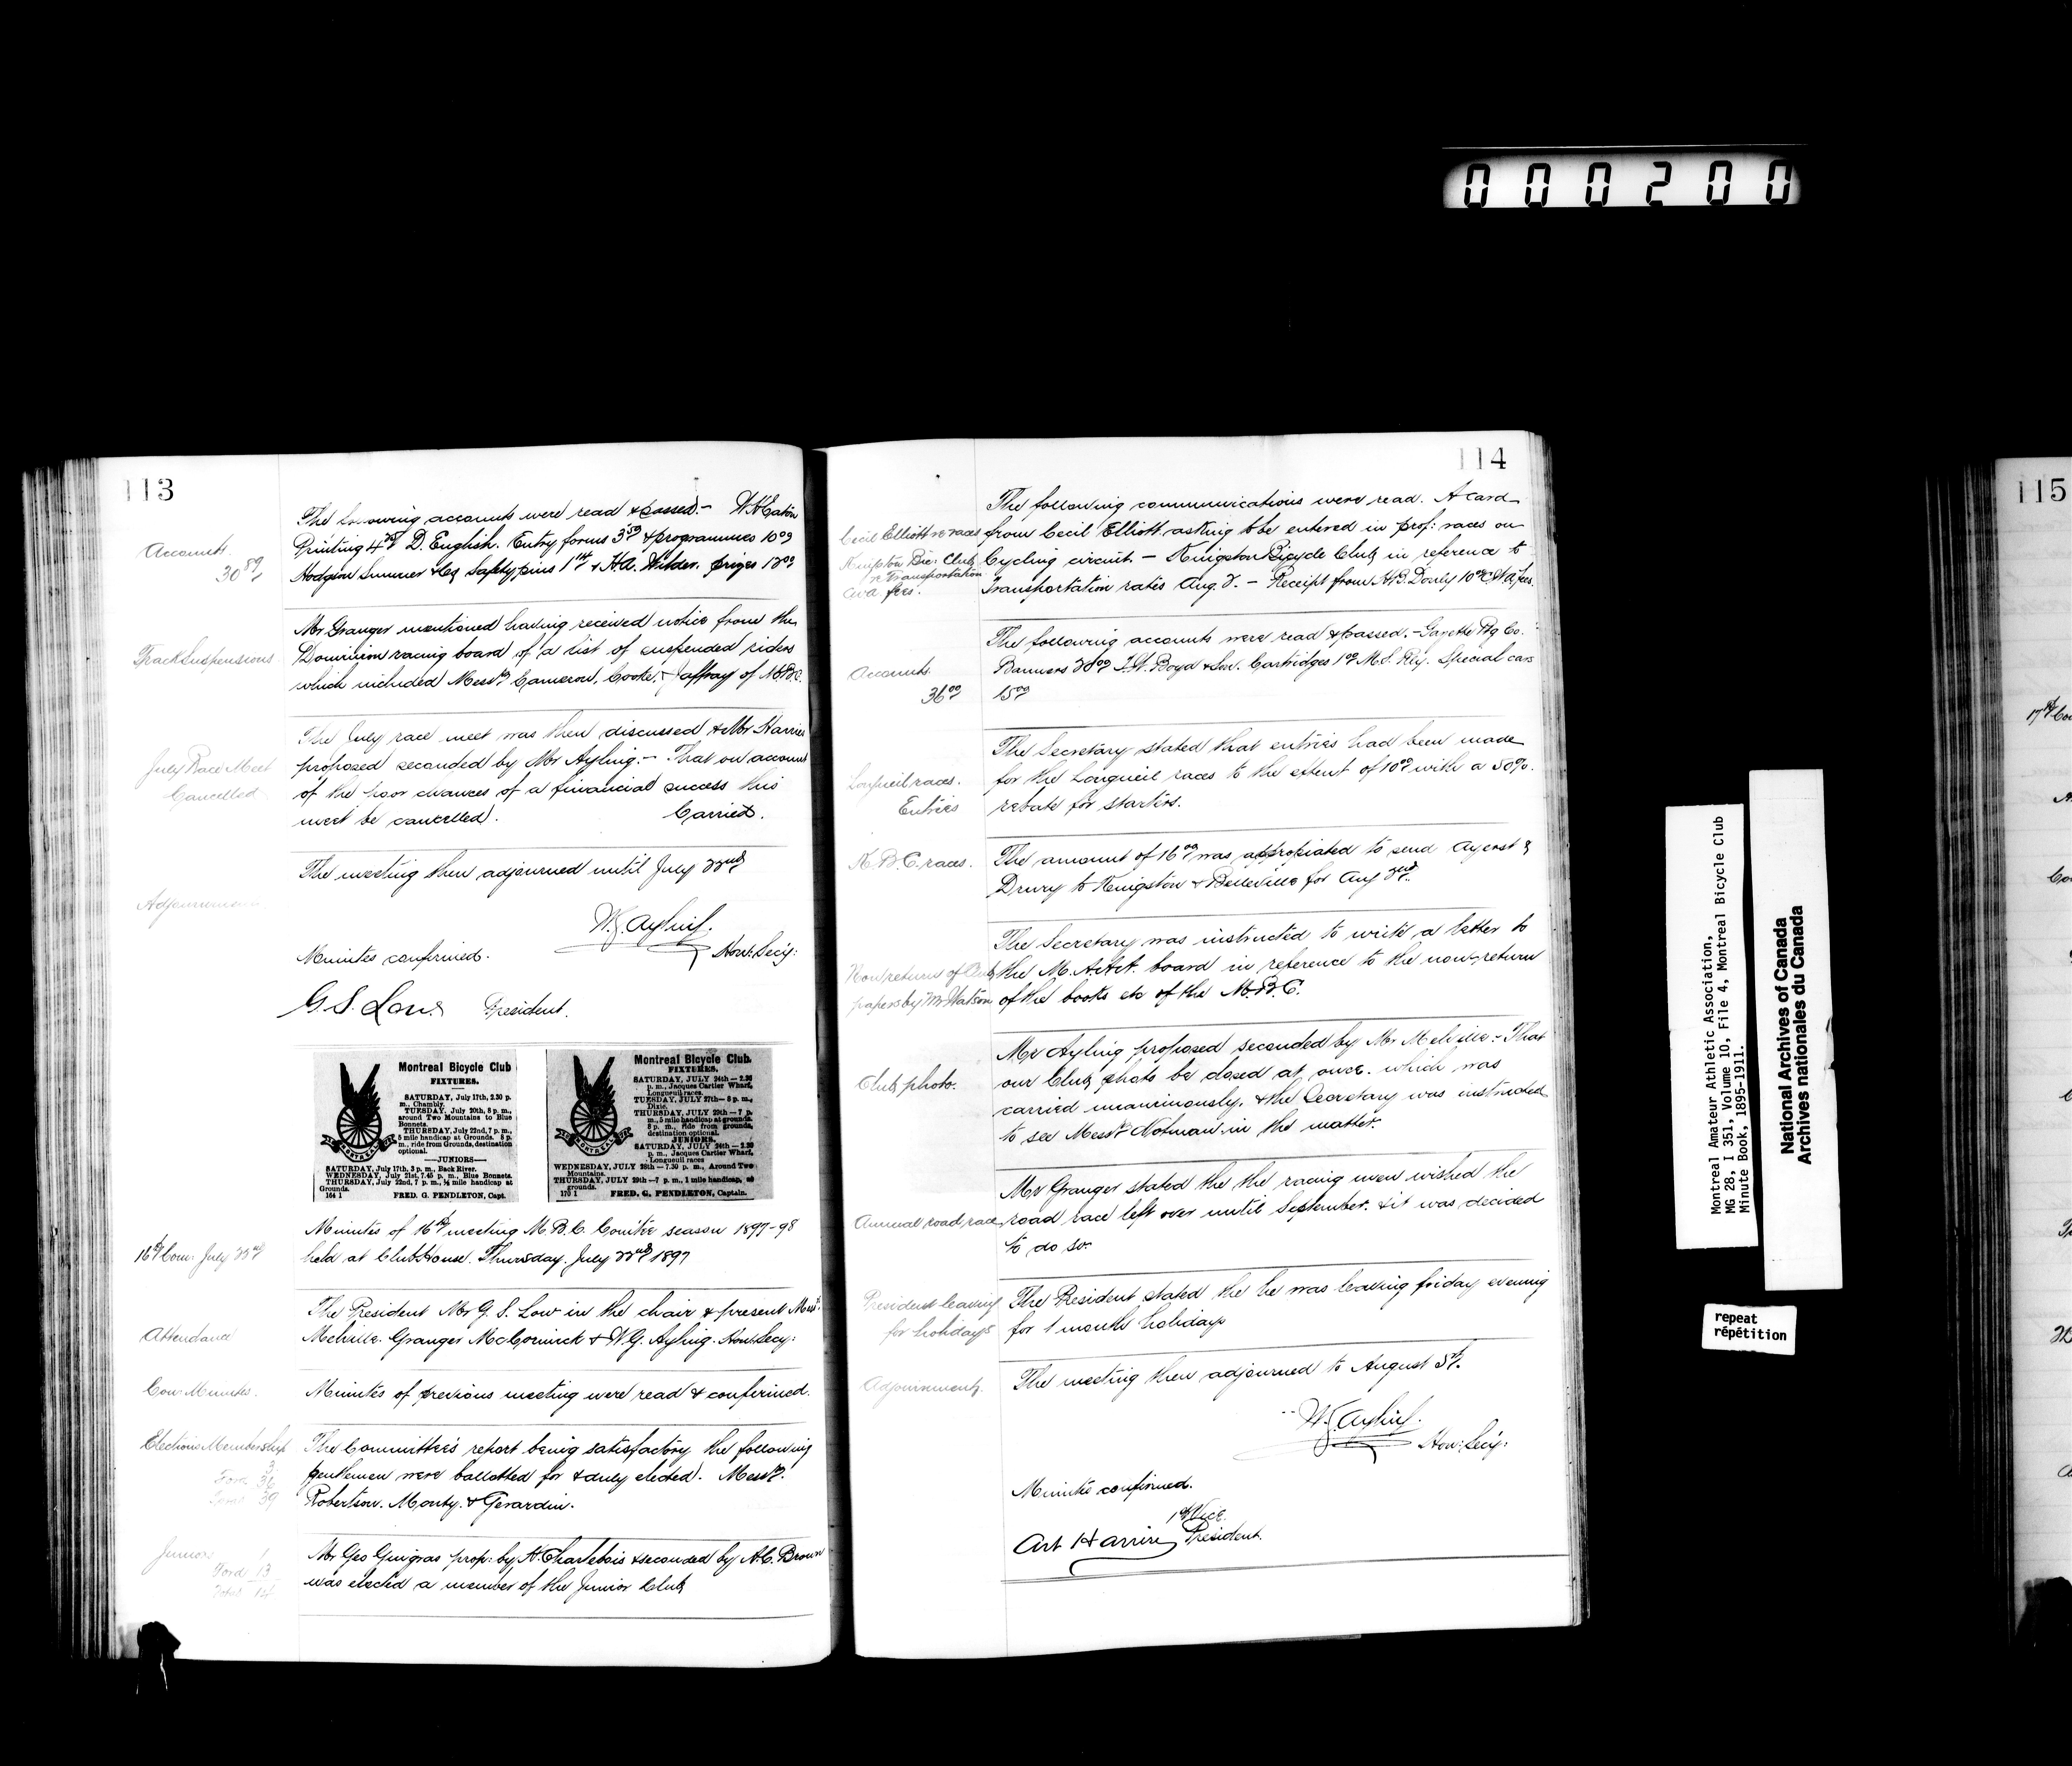 000200
113
Accounts.
The following accounts were read & passed:- W.H. Eaton
Printing D. English. Entry forms 3.50 & programmes 10.00
Hodgson Sumner & Co Safety pins & H.A. Wilder. prizes
Track Suspensions
Mr Granger mentioned having received notice from the
Dominion racing board of a list of suspended riders
which included Messrs Cameron, Cooke, & Jaffray of M.B.C.
July Race Meet
Cancelled
The July race meet was then discussed & Mr Harries
proposed seconded by Mr Ayling:- That on account
of the poor chances of a financial success this
meet be cancelled. Carried.
Adjournment
The meeting then adjourned until July 22nd
W.G. Ayling.
Hon: Secy:
Minutes confirmed.
G.S. Low. President.
Montreal Bicycle Club
FIXTURES.
SATURDAY, July 17th, 2.30 p.
m., Chambly.
TUESDAY, July 20th, 8 p.m.,
around Two Mountains to Blue
Bonnets.
THURSDAY, July 22nd, 7 p.m.,
5 mile handicap at Grounds. 8 p.
m., ride from Grounds, destination
optional.
—JUNIORS—
SATURDAY, July 17th, 3 p.m., Back River.
WEDNESDAY, July 21st, 7.45 p.m., Blue Bonnets.
THURSDAY, July 22nd, 7 p.m., ½ mile handicap at
Grounds.
164 1 FRED. G. PENDLETON, Capt.
MONTREAL
Montreal Bicycle Club.
FIXTURES.
SATURDAY, JULY 24th—2.30
p. m., Jacques Cartier Wharf,
Longueuil races.
TUESDAY, JULY 27th—8 p. m.,
Dixie.
THURSDAY, JULY 29th—7 p.
m., 5 mile handicap at grounds.
8 p. m., ride from grounds,
destination optional.
JUNIORS.
SATURDAY, JULY 24th—2.30
p. m., Jacques Cartier Wharf,
Longueuil races
WEDNESDAY, JULY 28th—7.30 p. m., Around Two
Mountains.
THURSDAY, JULY 29th—7 p. m., 1 mile handicap, at
grounds.
170 1 FRED. G. PENDLETON, Captain.
MONTREAL
16th Com. July 22nd
Minutes of 16th meeting M.B.C. Comitee season 1897-98
held at Club House. Thursday. July 22nd 1897
Attendance
The President Mr G. S. Low in the chair & present Messrs.
Melville. Granger McCormick & W.G. Ayling. Hon: Secy:
Con: Minutes.
Minutes of previous meeting were read & confirmed.
Elections Membership
The Committee's report being satisfactory the following
gentlemen were ballotted for & duly elected. Messrs.
Robertson. Monty. & Gerardin.
Juniors
Mr Geo Guigras prop: by A. Charlebois & seconded by A.C. Brown
was elected a member of the Junior Club
114
Cecil Elliott re races
Kingston Bic. Club
re Transportation
CWA fees.
The following communications were read. A card
from Cecil Elliott asking to be entered in prof: races on
Cycling circuit. - Kingston Bicycle Club in reference to
Transportation rates Aug. 2. - Receipt from H.B. Donly 10.00 CWA fees.
Accounts.
36.00
The following accounts were read & passed.- Gazette Ptg Co.
Banners 20.00 T.W. Boyd & Son. Cartridges 1.00 M.S. Rly. Special cars
15.00
Longueil races.
Entries
The Secretary stated that entries had been made
for the Longueil races to the extent of 10.00 with a 50%.
rebate for starters.
K.B.C. races.
The amount of 16.00 was appropiated to send Ayerst &
Drury to Kingston & Belleville for Aug 2nd.
Non return of Club
papers by Mr Watson
The Secretary was instructed to write a letter to
the M.A.A.A. board in reference to the non-return
of the books etc of the M.B.C.
Club photo.
Mr Ayling proposed seconded by Mr Melville:- That
our Club photo be closed at once. which was
carried unanimously. & the Secretary was instructed
to see Messrs Notman in the matter.
Annual road race
Mr Granger stated the the racing men wished the
road race left over until September. & it was decided
to do so.
President leaving
for holidays
The President stated the he was leaving friday evening
for 1 month holidays
Adjournment.
The meeting then adjourned to August 5th.
W.G. Ayling.
Hon: Secy:
Minutes confirmed.
1st Vice
Art Harries President.
115
Montreal Amateur Athletic Association,
MG 28, I 351, Volume 10, File 4, Montreal Bicycle Club
Minute Book, 1895-1911.
National Archives of Canada
Archives nationales du Canada
repeat
répétition